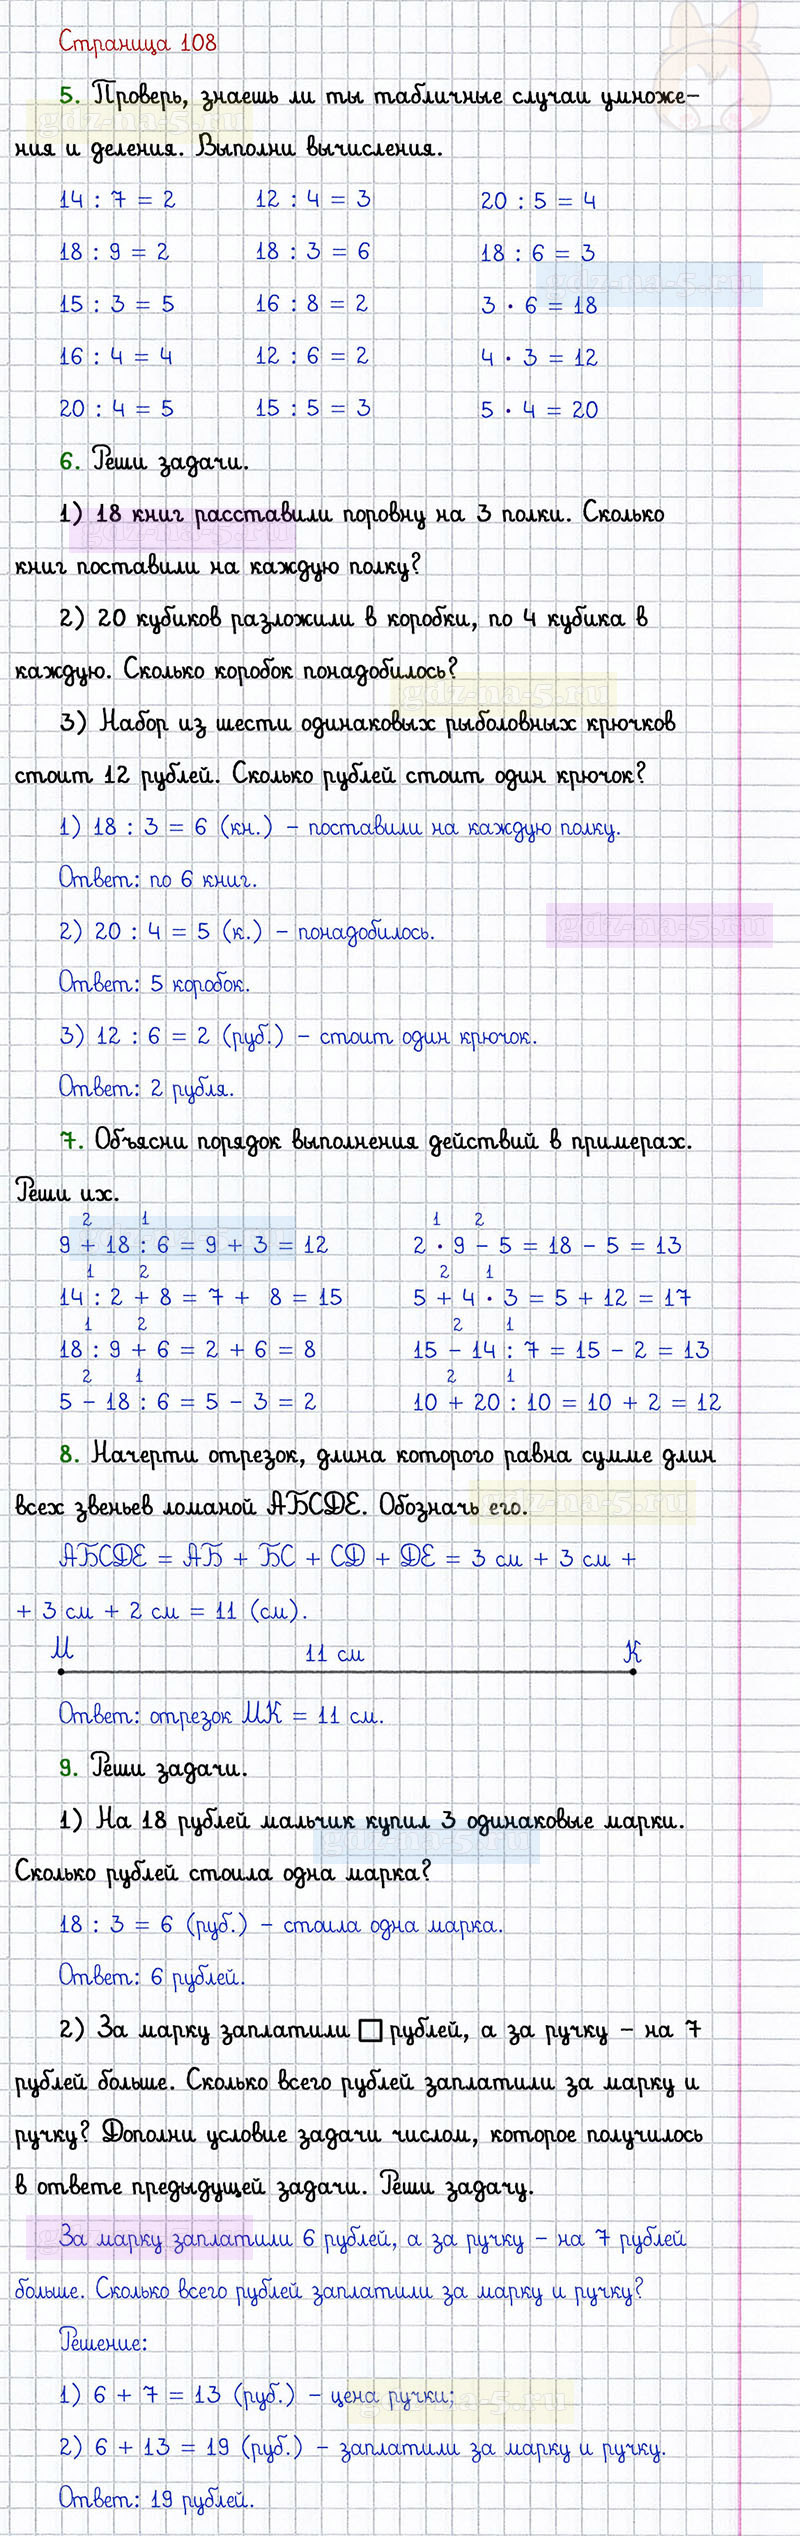 Страница 108
5. Проверь, знаешь ли ты табличные случаи умноже-
ния и деления. Выполни вычисления.
14 : 7 = 2 12 : 4 = 3 20 : 5 = 4
18 : 9 = 2 18 : 3 = 6 18 : 6 = 3
gdz-na-5.ru
15 : 3 = 5 16 : 8 = 2 3 · 6 = 18
16 : 4 = 4 12 : 6 = 2 4 · 3 = 12
20 : 4 = 5 15 : 5 = 3 5 · 4 = 20
6. Реши задачи.
1) 18 книг расставили поровну на 3 полки. Сколько
книг поставили на каждую полку?
2) 20 кубиков разложили в коробки, по 4 кубика в
каждую. Сколько коробок понадобилось?
gdz-na-5.ru
3) Набор из шести одинаковых рыболовных крючков
стоит 12 рублей. Сколько рублей стоит один крючок?
1) 18 : 3 = 6 (кн.) – поставили на каждую полку.
Ответ: по 6 книг.
2) 20 : 4 = 5 (к.) – понадобилось.
gdz-na-5.ru
Ответ: 5 коробок.
3) 12 : 6 = 2 (руб.) – стоит один крючок.
Ответ: 2 рубля.
7. Объясни порядок выполнения действий в примерах.
Реши их.
2 1 1 2
9 + 18 : 6 = 9 + 3 = 12 2 · 9 – 5 = 18 – 5 = 13
1 2 2 1
14 : 2 + 8 = 7 + 8 = 15 5 + 4 · 3 = 5 + 12 = 17
1 2 2 1
18 : 9 + 6 = 2 + 6 = 8 15 – 14 : 7 = 15 – 2 = 13
2 1 2 1
5 – 18 : 6 = 5 – 3 = 2 10 + 20 : 10 = 10 + 2 = 12
8. Начерти отрезок, длина которого равна сумме длин
всех звеньев ломаной АБСДЕ. Обозначь его.
АБСДЕ = АБ + БС + СД + ДЕ = 3 см + 3 см +
+ 3 см + 2 см = 11 (см).
М 11 см К
Ответ: отрезок МК = 11 см.
9. Реши задачи.
1) На 18 рублей мальчик купил 3 одинаковые марки.
gdz-na-5.ru
Сколько рублей стоила одна марка?
18 : 3 = 6 (руб.) – стоила одна марка.
Ответ: 6 рублей.
2) За марку заплатили □ рублей, а за ручку – на 7
рублей больше. Сколько всего рублей заплатили за марку и
ручку? Дополни условие задачи числом, которое получилось
в ответе предыдущей задачи. Реши задачу.
За марку заплатили 6 рублей, а за ручку – на 7 рублей
больше. Сколько всего рублей заплатили за марку и ручку?
Решение:
1) 6 + 7 = 13 (руб.) – цена ручки;
2) 6 + 13 = 19 (руб.) – заплатили за марку и ручку.
Ответ: 19 рублей.